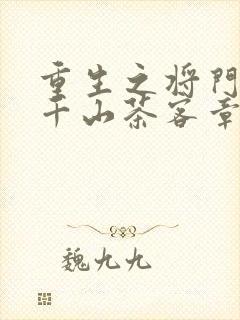 重生之将门
千山茶客章
魏九九